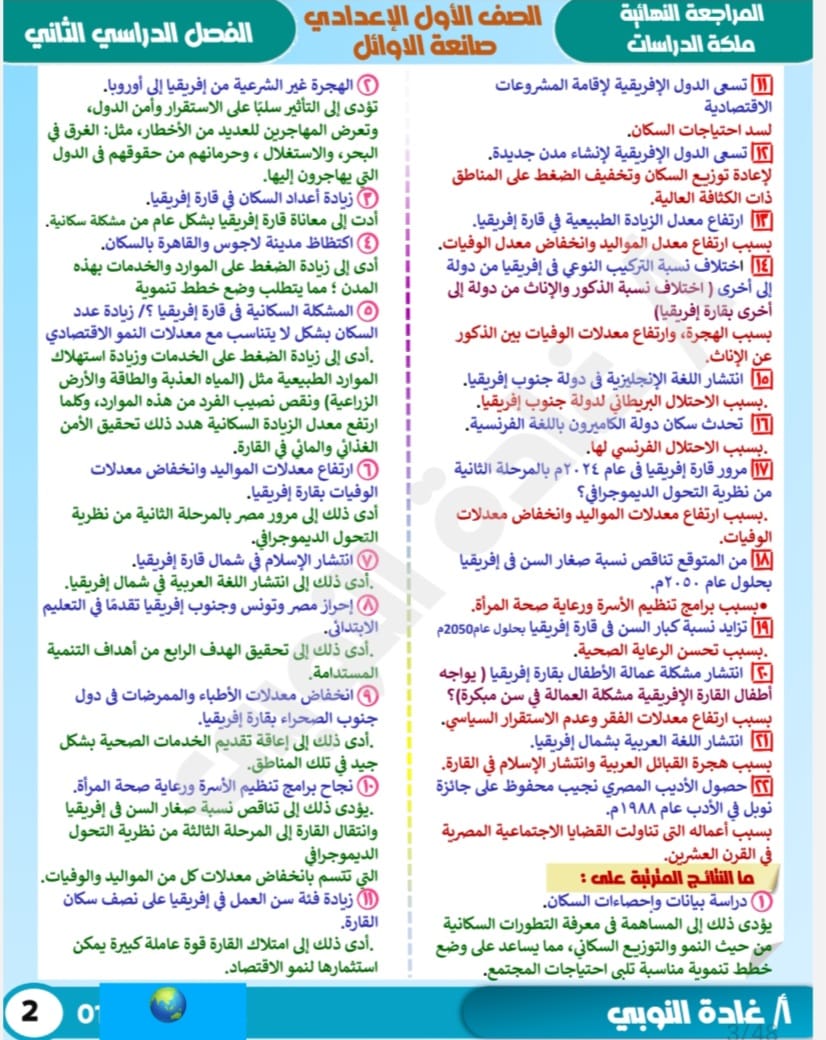 المراجعة النهائية
ملكة الدراسات
الصف الأول الإعدادي
صانعة الاوائل
الفصل الدراسي الثاني
١١ تسعى الدول الإفريقية لإقامة المشروعات
الاقتصادية
لسد احتياجات السكان.
١٢ تسعى الدول الإفريقية لإنشاء مدن جديدة.
لإعادة توزيع السكان وتخفيف الضغط على المناطق
ذات الكثافة العالية.
١٣ ارتفاع معدل الزيادة الطبيعية في قارة إفريقيا.
بسبب ارتفاع معدل المواليد وانخفاض معدل الوفيات.
١٤ اختلاف نسبة التركيب النوعي فى إفريقيا من دولة
إلى أخرى ( اختلاف نسبة الذكور والإناث من دولة إلى
أخرى بقارة إفريقيا)
بسبب الهجرة، وارتفاع معدلات الوفيات بين الذكور
عن الإناث.
١٥ انتشار اللغة الإنجليزية فى دولة جنوب إفريقيا.
.بسبب الاحتلال البريطاني لدولة جنوب إفريقيا.
١٦ تحدث سكان دولة الكاميرون باللغة الفرنسية.
.بسبب الاحتلال الفرنسي لها.
١٧ مرور قارة إفريقيا فى عام ٢٠٢٤م بالمرحلة الثانية
من نظرية التحول الديموجرافي؟
.بسبب ارتفاع معدلات المواليد وانخفاض معدلات
الوفيات.
١٨ من المتوقع تناقص نسبة صغار السن فى إفريقيا
بحلول عام ٢٠٥٠م.
•بسبب برامج تنظيم الأسرة ورعاية صحة المرأة.
١٩ تزايد نسبة كبار السن فى قارة إفريقيا بحلول عام2050م
.بسبب تحسن الرعاية الصحية.
٢٠ انتشار مشكلة عمالة الأطفال بقارة إفريقيا ( يواجه
أطفال القارة الإفريقية مشكلة العمالة في سن مبكرة)؟
بسبب ارتفاع معدلات الفقر وعدم الاستقرار السياسي.
٢١ انتشار اللغة العربية بشمال إفريقيا.
بسبب هجرة القبائل العربية وانتشار الإسلام في القارة.
٢٢ حصول الأديب المصري نجيب محفوظ على جائزة
نوبل في الأدب عام ١٩٨٨م.
بسبب أعماله التى تناولت القضايا الاجتماعية المصرية
في القرن العشرين.
ما النتائج المترتبة على :
١ دراسة بيانات وإحصاءات السكان.
يؤدى ذلك إلى المساهمة فى معرفة التطورات السكانية
من حيث النمو والتوزيع السكاني، مما يساعد على وضع
خطط تنموية مناسبة تلبى احتياجات المجتمع.
٢ الهجرة غير الشرعية من إفريقيا إلى أوروبا.
تؤدى إلى التأثير سلبًا على الاستقرار وأمن الدول،
وتعرض المهاجرين للعديد من الأخطار، مثل: الغرق في
البحر، والاستغلال ، وحرمانهم من حقوقهم فى الدول
التي يهاجرون إليها.
٣ زيادة أعداد السكان في قارة إفريقيا.
أدت إلى معاناة قارة إفريقيا بشكل عام من مشكلة سكانية.
٤ اكتظاظ مدينة لاجوس والقاهرة بالسكان.
أدى إلى زيادة الضغط على الموارد والخدمات بهذه
المدن ؛ مما يتطلب وضع خطط تنموية
٥ المشكلة السكانية فى قارة إفريقيا ؟/ زيادة عدد
السكان بشكل لا يتناسب مع معدلات النمو الاقتصادي
.أدى إلى زيادة الضغط على الخدمات وزيادة استهلاك
الموارد الطبيعية مثل (المياه العذبة والطاقة والأرض
الزراعية) ونقص نصيب الفرد من هذه الموارد، وكلما
ارتفع معدل الزيادة السكانية هدد ذلك تحقيق الأمن
الغذائي والمائي في القارة.
٦ ارتفاع معدلات المواليد وانخفاض معدلات
الوفيات بقارة إفريقيا.
أدى ذلك إلى مرور مصر بالمرحلة الثانية من نظرية
التحول الديموجرافي.
٧ انتشار الإسلام في شمال قارة إفريقيا.
.أدى ذلك إلى انتشار اللغة العربية في شمال إفريقيا.
٨ إحراز مصر وتونس وجنوب إفريقيا تقدمًا في التعليم
الابتدائى.
.أدى ذلك إلى تحقيق الهدف الرابع من أهداف التنمية
المستدامة.
٩ انخفاض معدلات الأطباء والممرضات فى دول
جنوب الصحراء بقارة إفريقيا.
.أدى ذلك إلى إعاقة تقديم الخدمات الصحية بشكل
جيد في تلك المناطق.
١٠ نجاح برامج تنظيم الأسرة ورعاية صحة المرأة.
.يؤدى ذلك إلى تناقص نسبة صغار السن فى إفريقيا
وانتقال القارة إلى المرحلة الثالثة من نظرية التحول
الديموجرافي
التي تتسم بانخفاض معدلات كل من المواليد والوفيات.
١١ زيادة فئة سن العمل في إفريقيا على نصف سكان
القارة.
.أدى ذلك إلى امتلاك القارة قوة عاملة كبيرة يمكن
استثمارها لنمو الاقتصاد.
أ/ غادة النوبي
3/48
01
2